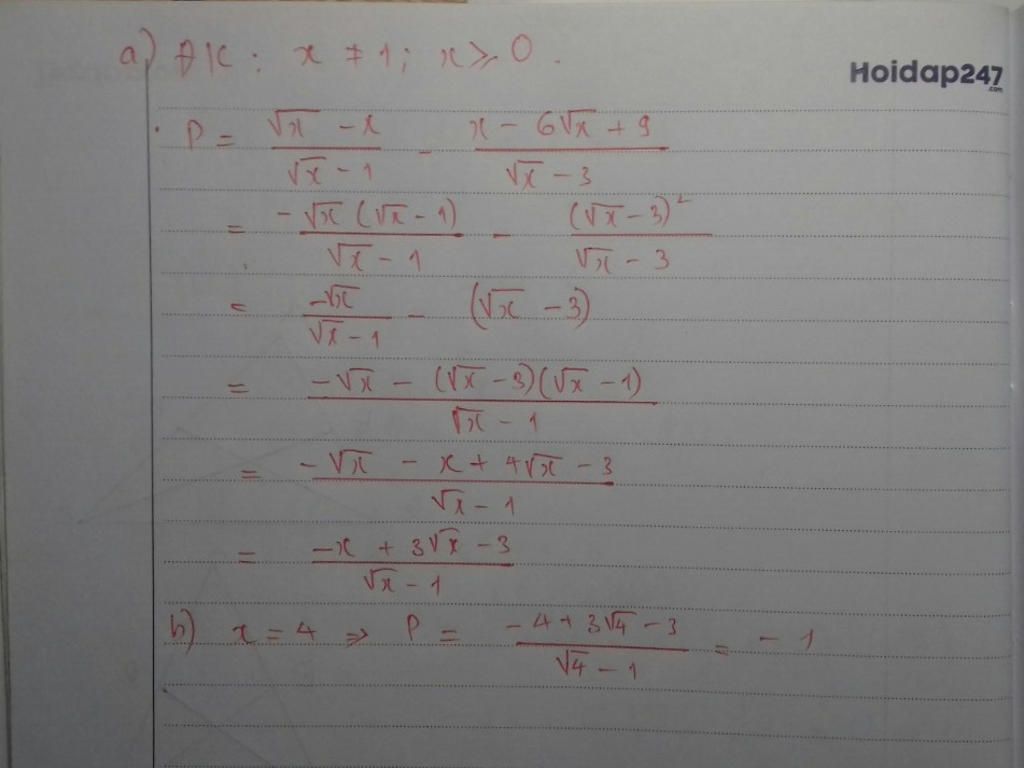 a) ĐK : x ≠ 1 ; x ≥ 0 .
Hoidap247
.com
P = (√x - x)/(√x - 1) - (x - 6√x + 9)/(√x - 3)
= (-√x (√x - 1))/(√x - 1) - ((√x - 3)²)/(√x - 3)
= (-√x)/(√x - 1) - (√x - 3)
= (-√x - (√x - 3)(√x - 1))/(√x - 1)
= (-√x - x + 4√x - 3)/(√x - 1)
= (-x + 3√x - 3)/(√x - 1)
b) x = 4 => P = (-4 + 3√4 - 3)/(√4 - 1) = -1